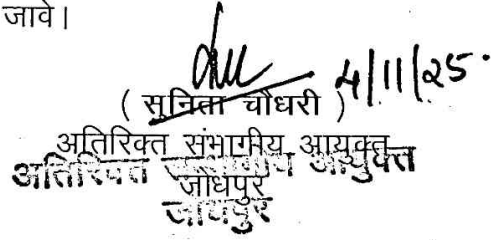 जावे।
4/11/25
( सुनिता चौधरी )
अतिरिक्त संभागीय आयुक्त
अतिरिक्त संभागीय आयुक्त
जोधपुर
जोधपुर